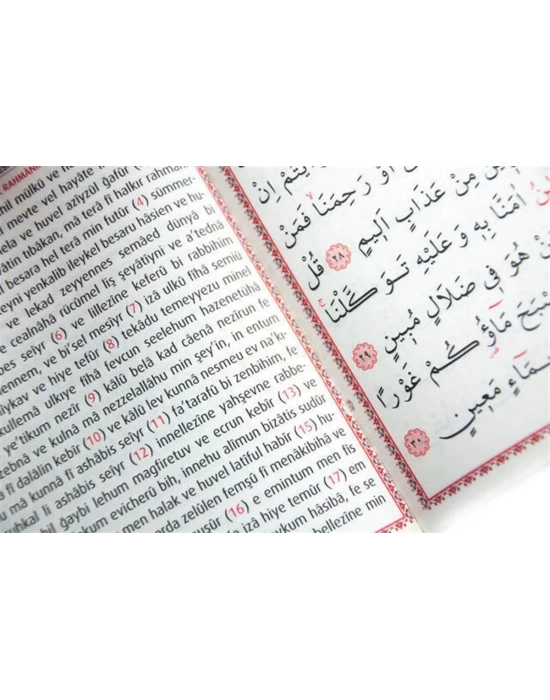 RAHMANI
mil mülkü ve
meyte vel hayate
ve huvel azîyzül ğafûr
tıbâkan, mâ terâ fî halkır rahman
besara hel terâ min futûr (4) sümmer-
yenkalib ileykel besaru hâsien ve hu-
ve lekad zeyyennes semâed dünyâ bi
cealnâhâ rücûmel liş şeyâtîyni ve a'tednâ
seîyr (6) ve lillezîne keferû bi rabbihim
ve bi'sel mesîyr (7) izâ ulkû fîhâ semiû
ve hiye tefûr (8) tekâdu temeyyezu minel
küllemâ ulkıye fîhâ fevcun seelehum hazenetühâ
e'tikum nezîr (9) kâlû belâ kad câenâ nezîrun fe
ve kulnâ mâ nezzelallâhu min şey'in, in entum
fî dalâlin kebîr (10) ve kâlû lev kunnâ nesmeu ev na'k-
mâ kunnâ fî ashâbis seîyr (11) fa'terafû bi zenbihim, fe
li ashâbis seîyr (12) innellezîne yahşevne rabbe-
bil ğaybi lehum mağfiretuv ve ecrun kebîr (13) ve
evicherû bih, innehu alîmun bizâtis sudûr
men halak ve huvel latîful habîr (15) hu-
zelûlen femşû fî menâkibihâ ve
(16) e emintum men fis
izâ hiye temûr (17) em
hâsıbâ, fe se
bellezîne min
اَوْ رَحِمَنَاۙ فَمَنْ
مِنْ عَذَابٍ اَلِيمٍ ﴿٢٨﴾ قُلْ
اٰمَنَّا بِهِ وَعَلَيْهِ تَوَكَّلْنَاۚ
هُوَ فِي ضَلَالٍ مُبِينٍ ﴿٢٩﴾
مَٓاؤُ۬كُمْ غَوْرًا
مَعِينٍ ﴿٣٠﴾